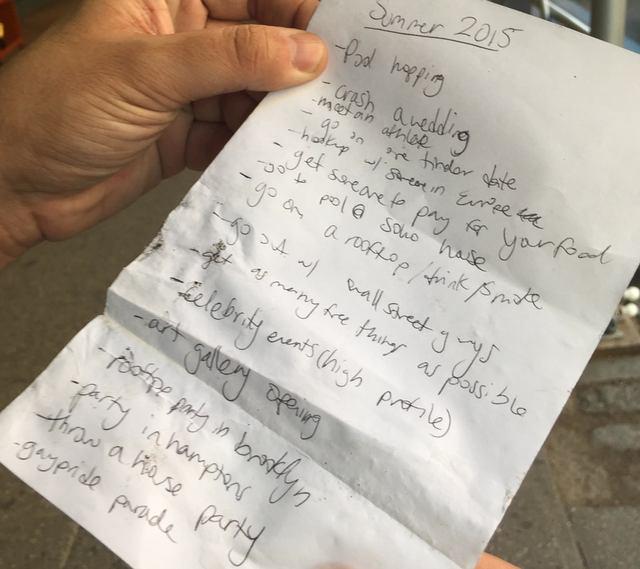 Summer 2015
-Pool hopping
-crash a wedding
-meet an athlete
-go on one tinder date
-hookup w/ someone in Europe
-get someone to pay for your food
-go to pool @ soho house
-go on a rooftop/drink/smoke
-go out w/ wall street guys
-get as many free things as possible
-celebrity events (high profile)
-art gallery opening
-rooftop party in brooklyn
-party in hamptons
-throw a house party
-gaypride parade